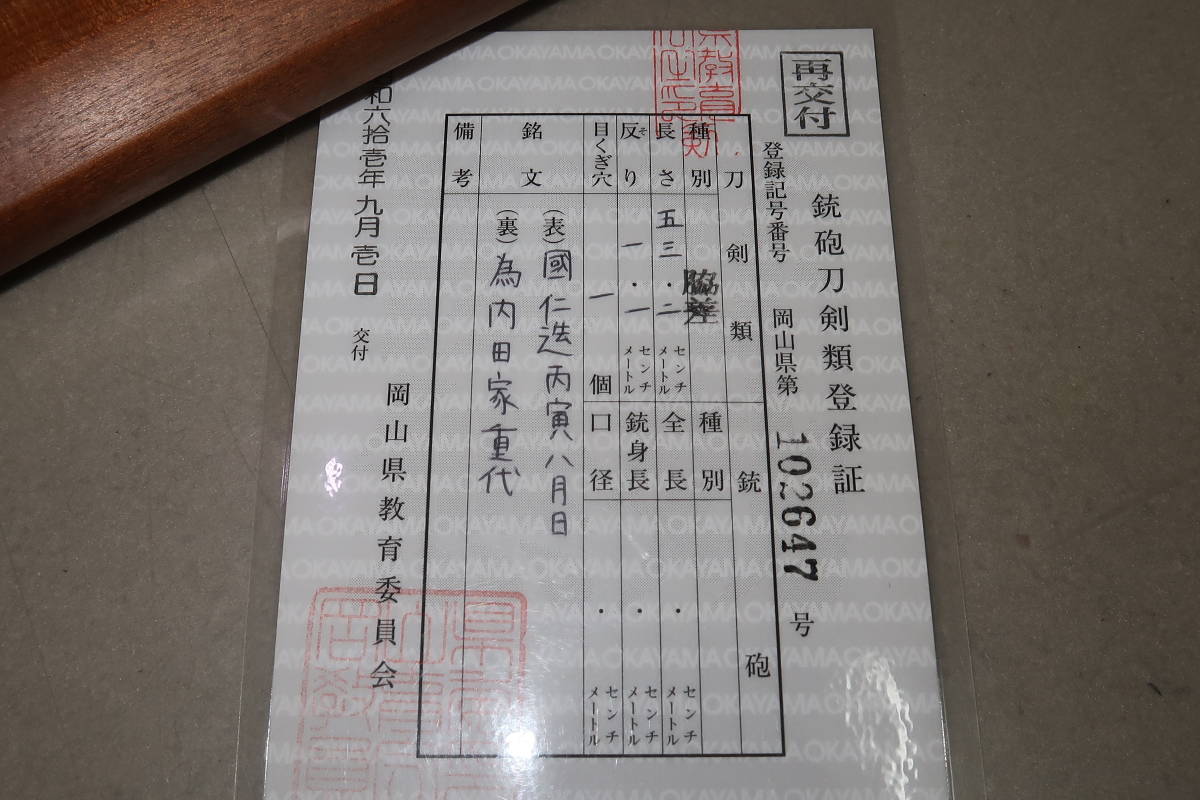 再交付
銃砲刀剣類登録証
登録記号番号 岡山県第 102647 号
刀剣類 銃砲
種別 脇差 種別
長さ 五三・二 センチメートル 全長 ・ センチメートル
反り 一・一 センチメートル 銃身長 ・ センチメートル
そ
目くぎ穴 一 個 口径 ・ センチメートル
銘文 (表) 國仁造丙寅八月日
(裏) 為内田家重代
備考
和六拾壱年九月壱日 交付
岡山県教育委員会
OKAYAMA